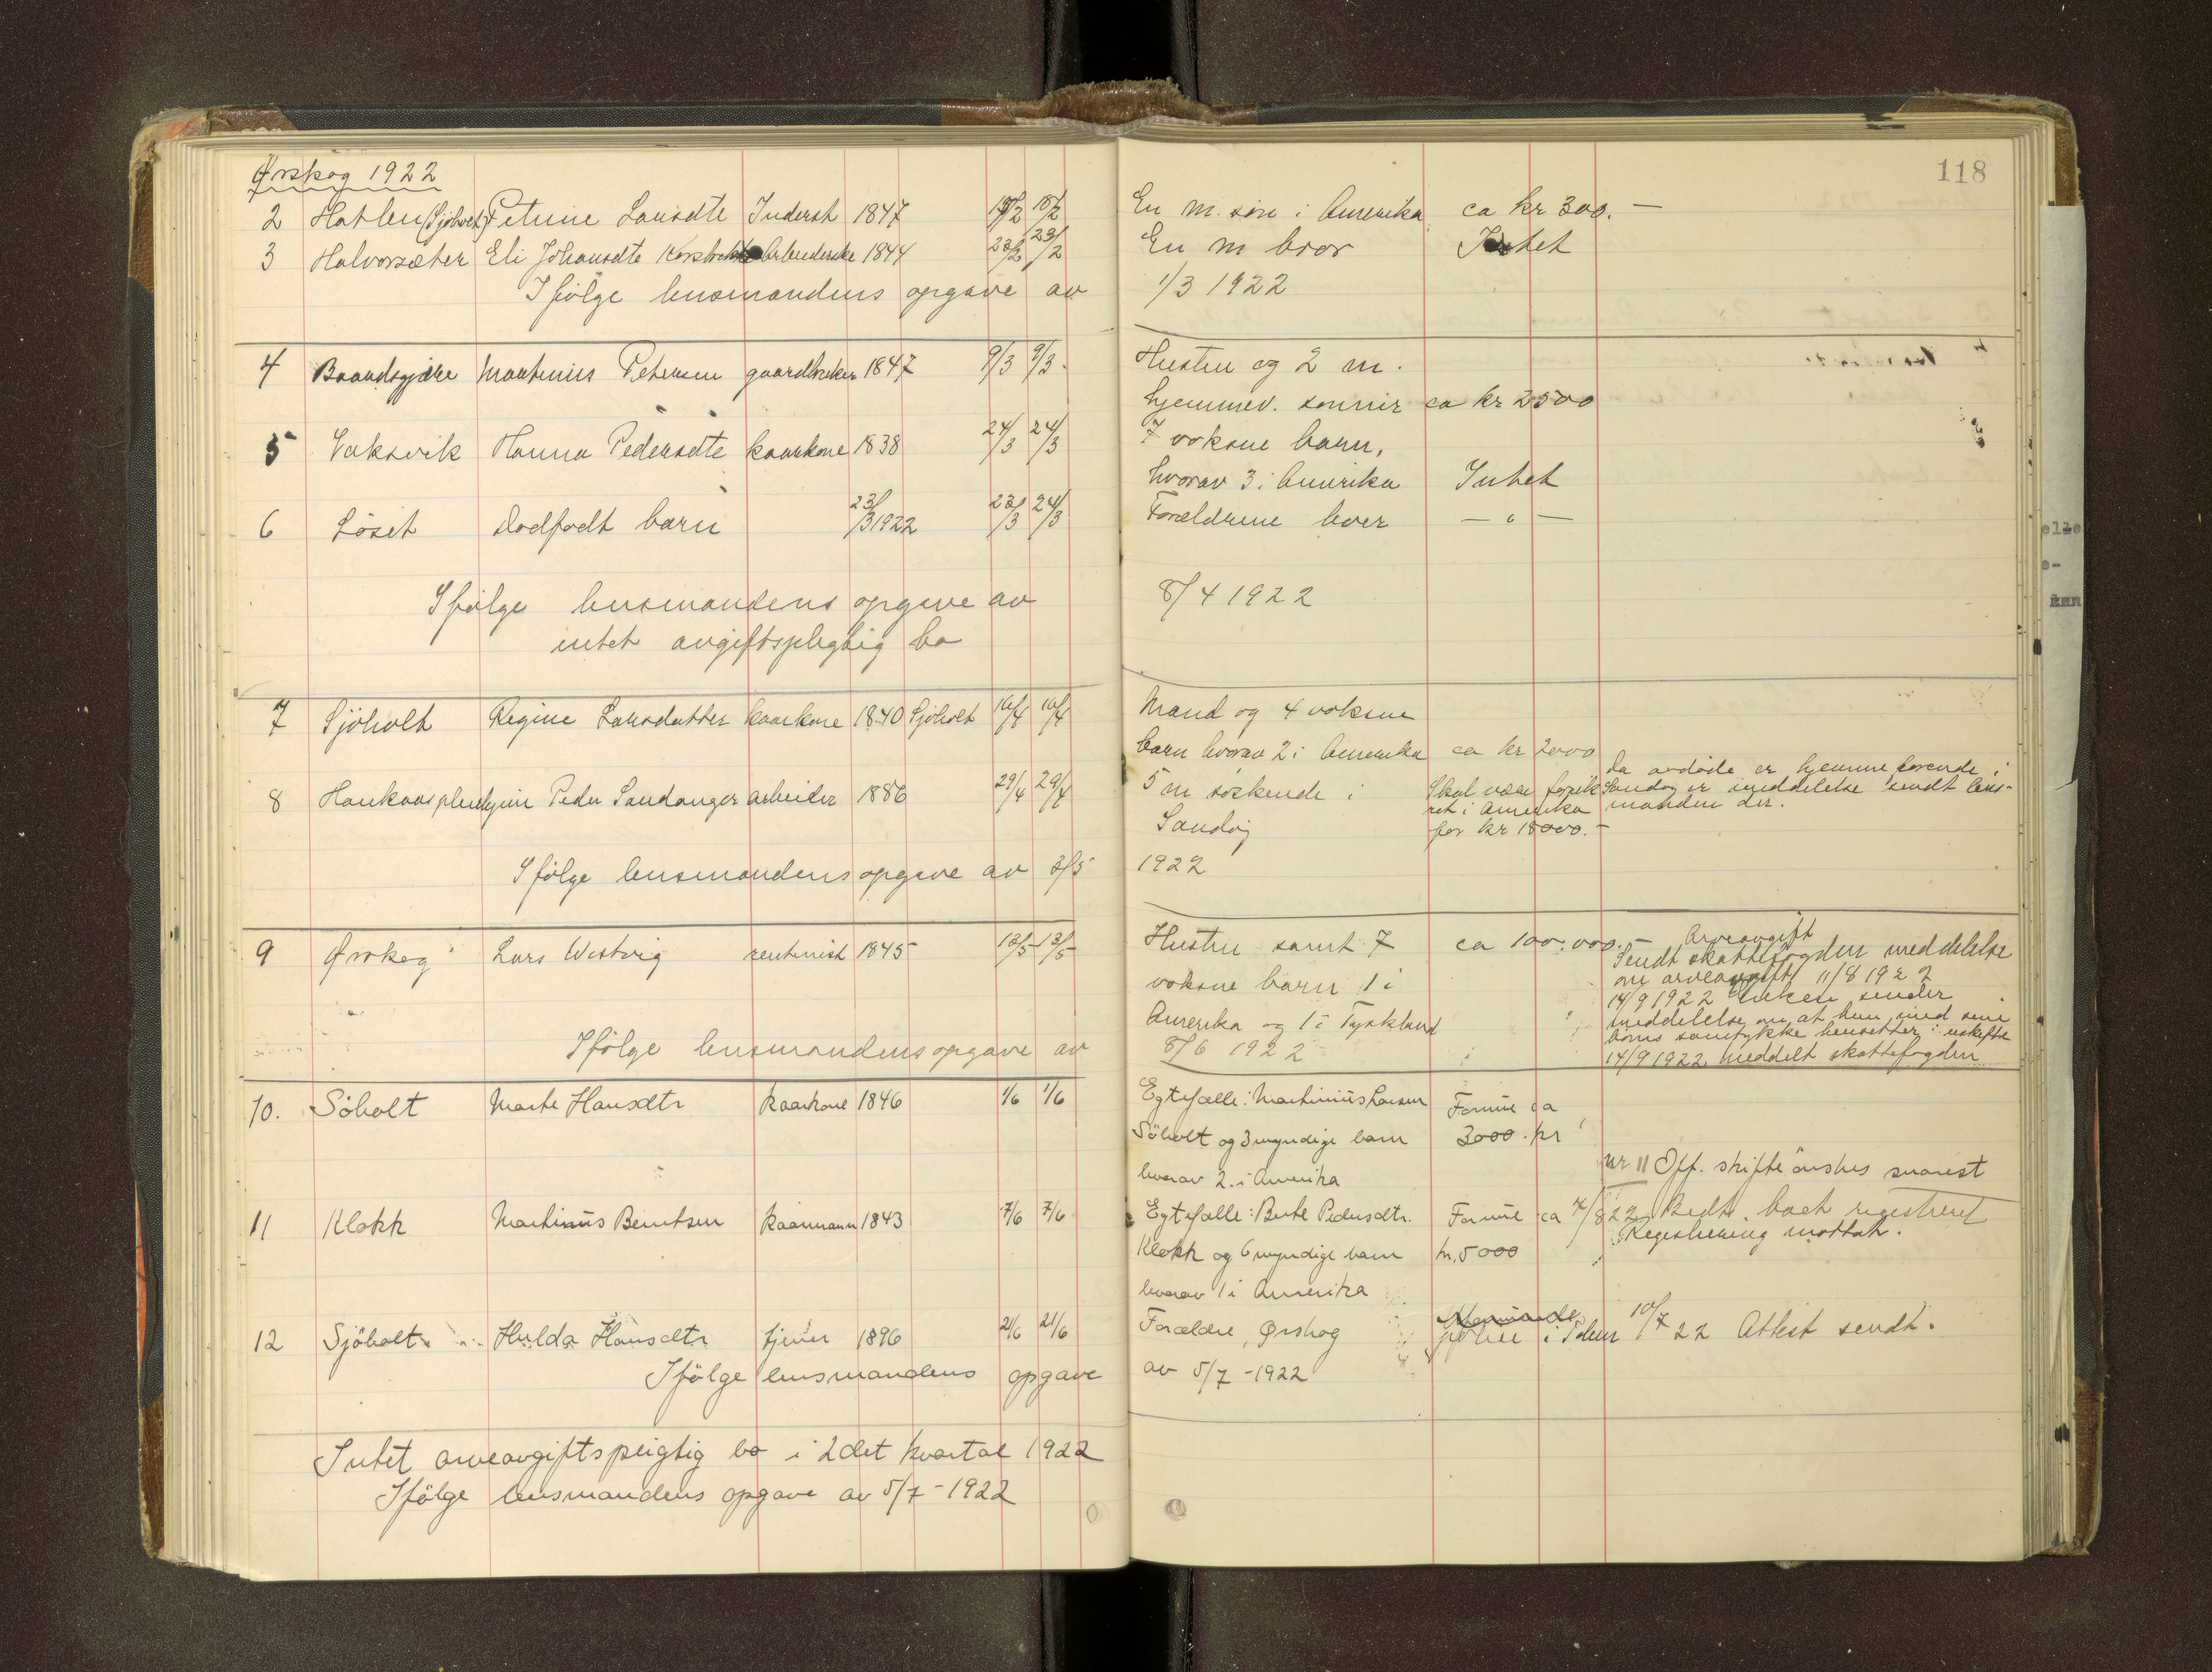 118
Ørskog 1922
2 Hatlen (Sjöholt) Petrine Larsdtr Inderst 1847 18/2 18/2 En m. sön i Amerika ca kr 300.—
3 Halvorsæter Eli Johansdtr Arbeiderske 1844 23/2 23/2 En m bror Intet
Ifölge lensmandens opgave av 1/3 1922
4 Martinius Petersen gaardbruker 1847 9/3 9/3 Hustru og 2 m.
hjemmev. sönner ca kr 2500
5 Vaksvik Hanna Pedersdtr kaarkone 1838 24/3 24/3 7 voksne barn,
hvorav 3 i Amerika Intet
6 Löset Dödfödt barn 23/3 1922 23/3 24/3 Forældrene lever — " —
Ifölge lensmandens opgave av 8/4 1922
intet avgiftspligtig bo
7 Sjöholt Regine Larsdatter kaarkone 1840 Sjöholt 16/4 16/4 Mand og 4 voksne
barn hvorav 2 i Amerika ca kr 2000
8 Peder Sandanger arbeider 1886 29/4 29/4 5 m söskende i
Sandöy
Skal være forsik
ret i Amerika
for kr 18000.—
Da avdöde er hjemmehörende i
Sandöy er meddelelse sendt lens-
manden der.
Ifölge lensmandens opgave av 3/5 1922
9 Ørskog Lars Westvig rentenist 1845 13/5 13/5 Hustru samt 7 ca 100.000.—
voksne barn 1 i
Amerika og 1 i Tyskland
Arveavgift
Sendt skattefogden meddelelse
om arveavgift 11/8 1922
14/9 1922 Enken sender
meddelelse om at hun med sine
börns samtykke hensetter i uskifte
14/9 1922 meddelt skattefogden
Ifölge lensmandens opgave av 8/6 1922
10. Söholt Marte Hansdtr kaarkone 1846 1/6 1/6 Egtefælle: Martinius Larsen Formue ca
Söholt og 3 myndige barn 3000.kr
hvorav 2 i Amerika
nr 11 Off. skifte önskes snarest
11 Klokk Martinus Berntsen kaarmann 1843 7/6 7/6 Egtefælle: Berte Pedersdtr. Formue ca 7/8 22 Bedt boet registreret
Klokk og 6 myndige barn kr. 5000 Registrering mottat.
hvorav 1 i Amerika
12 Sjöholt Hulda Hansdtr tjener 1896 21/6 21/6 Forældre, Ørskog 10/7 22 Attest sendt.
Ifölge lensmandens opgave av 5/7 -1922
Intet arveavgiftspligtig bo i 2det kvartal 1922
Ifölge lensmandens opgave av 5/7 - 1922